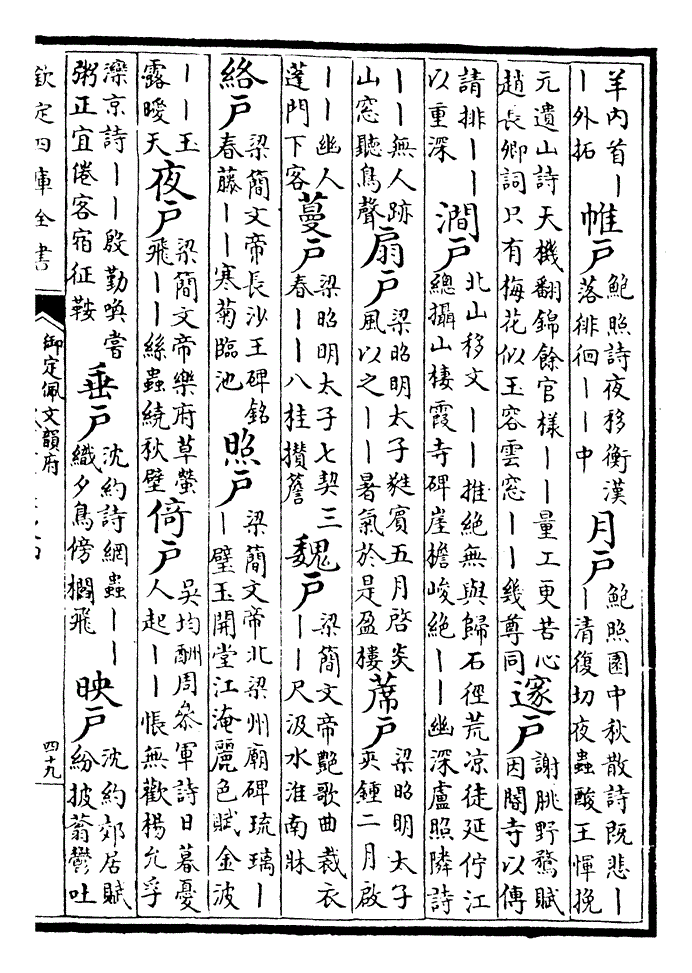 羊内首｜
｜外拓
帷戶
鮑照詩夜移衡漢
落徘徊｜｜中
月戶
鮑照園中秋散詩既悲｜
｜清復切夜蟲酸王惲挽
元遺山詩天機翻錦餘官樣｜｜量工更苦心
趙長卿詞只有梅花似玉容雲窓｜｜幾尊同
邃戶
謝朓野鶩賦
因閣寺以傳
請排｜｜
以重深
澗戶
北山移文｜｜摧絶無與歸石徑荒凉徒延佇江
總攝山棲霞寺碑崖檐峻絶｜｜幽深盧照隣詩
｜｜無人跡
山窓聽鳥聲
扇戶
梁昭明太子蕤賓五月啓炎
風以之｜｜暑氣於是盈樓
蓆戶
梁昭明太子
夾鍾二月啟
｜｜幽人
蓬門下客
蔓戶
梁昭明太子七契三
春｜｜八桂攅簷
魏戶
梁簡文帝艶歌曲裁衣
｜｜尺汲水淮南牀
絡戶
梁簡文帝長沙王碑銘
春藤｜｜寒菊臨池
照戶
梁簡文帝北梁州廟碑琉璃｜
｜璧玉開堂江淹麗色賦金波
｜｜玉
露曖天
夜戶
梁簡文帝樂府草螢
飛｜｜絲蟲繞秋壁
倚戶
吳均酬周參軍詩日暮憂
人起｜｜悵無歡楊允孚
灤京詩｜｜殷勤喚嘗
粥正宜倦客宿征鞍
垂戶
沈約詩網蟲｜｜
織夕鳥傍櫚飛
映戶
沈約郊居賦
紛披蓊鬱吐
欽定四庫全書
御定佩文韻府
四十九